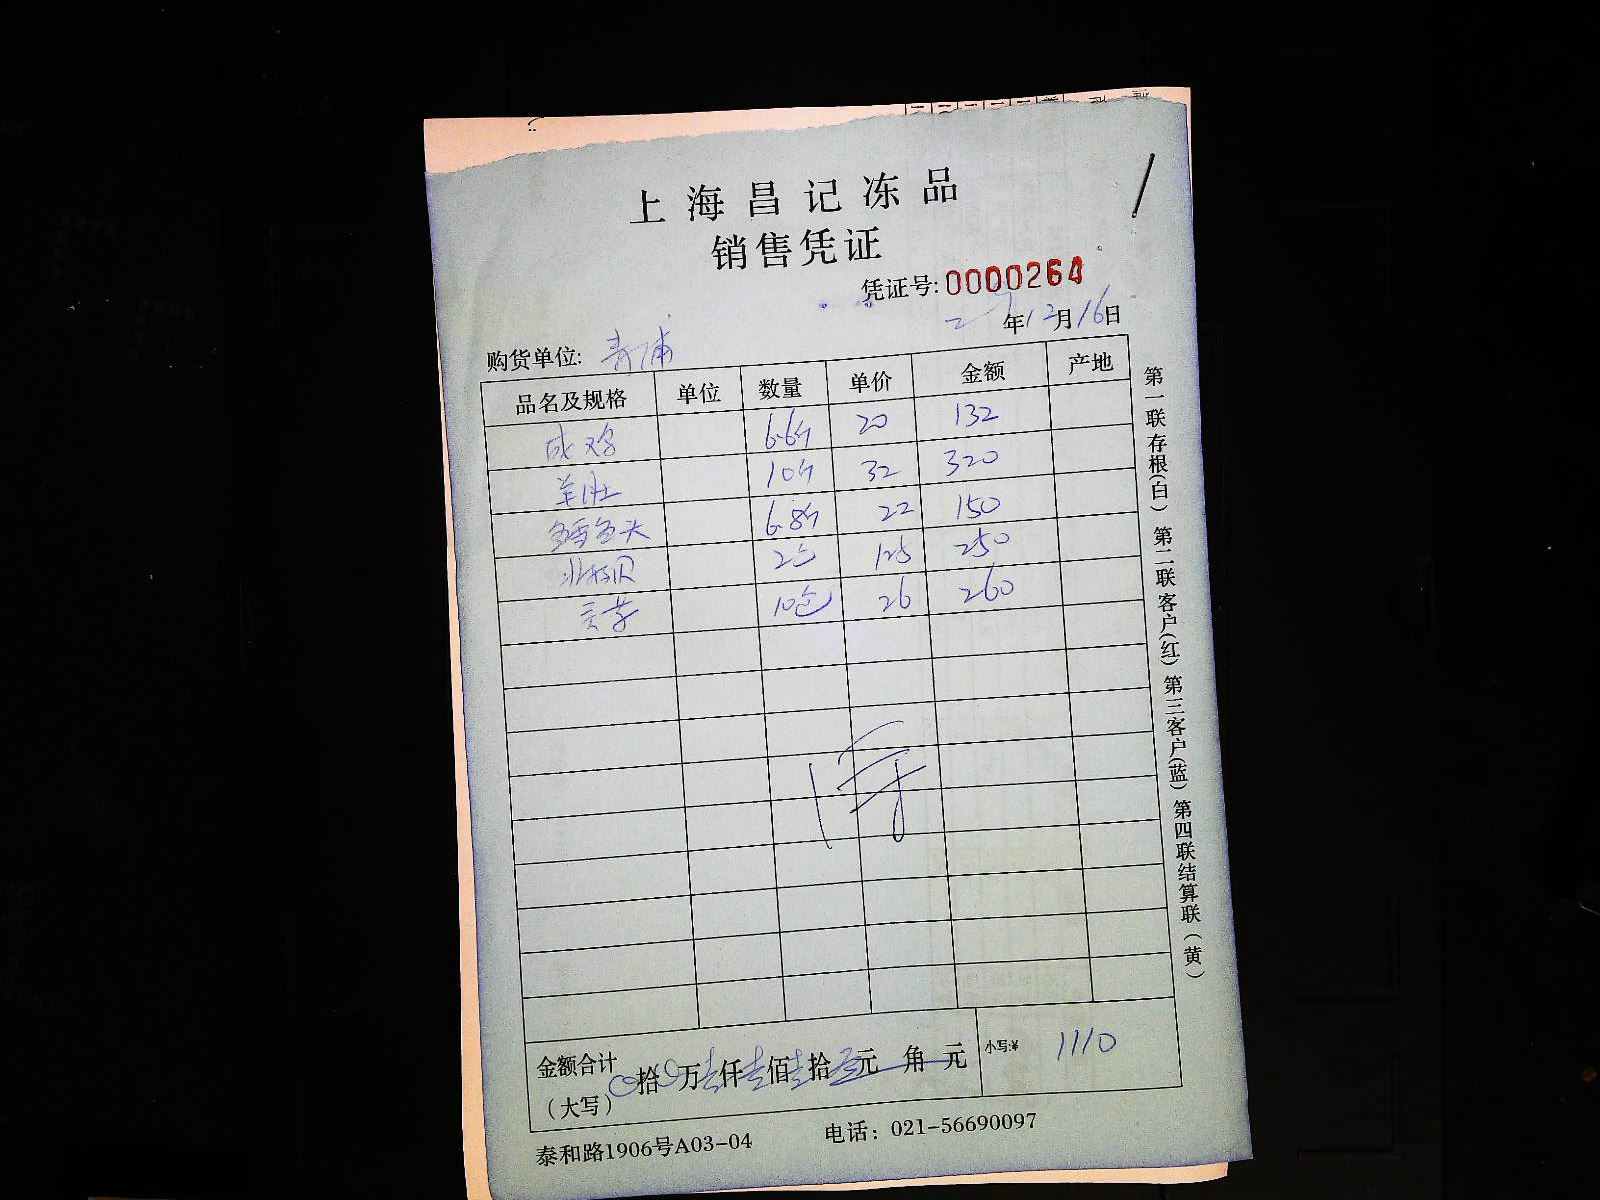 上海昌记冻品
销售凭证
凭证号:0000264
年12月16日
购货单位: 青浦
品名及规格 单位 数量 单价 金额 产地
咸鸡 6.6斤 20 132
羊肚 10斤 32 320
鱼头 6.8斤 22 150
贝 2包 125 250
10包 26 260
金额合计
(大写)
拾 万壹仟壹佰壹拾 元 角 元
小写:¥ 1110
泰和路1906号A03-04 电话：021-56690097
第一联存根(白) 第二联客户(红) 第三客户(蓝) 第四联结算联(黄)